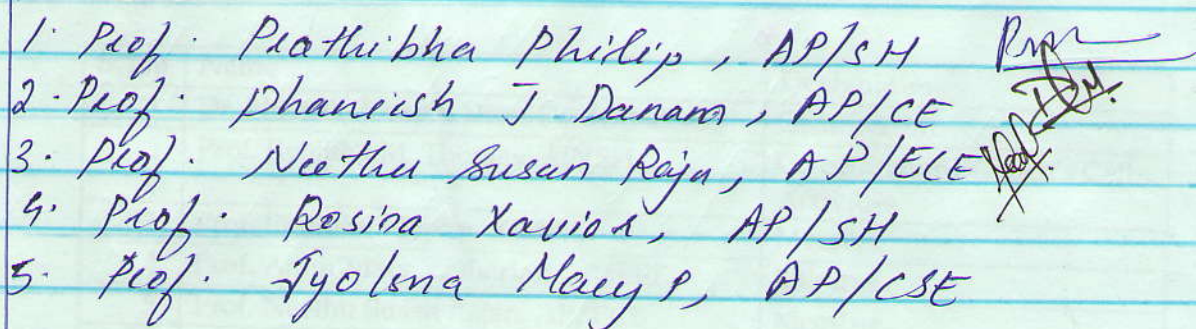 1. Prof. Prathibha Philip, AP/SH
2. Prof. Dhanish J Danam, AP/CE
3. Prof. Neethu Susan Raju, AP/ECE
4. Prof. Rosina Xavier, AP/SH
5. Prof. Jyolsna Mary P, AP/CSE